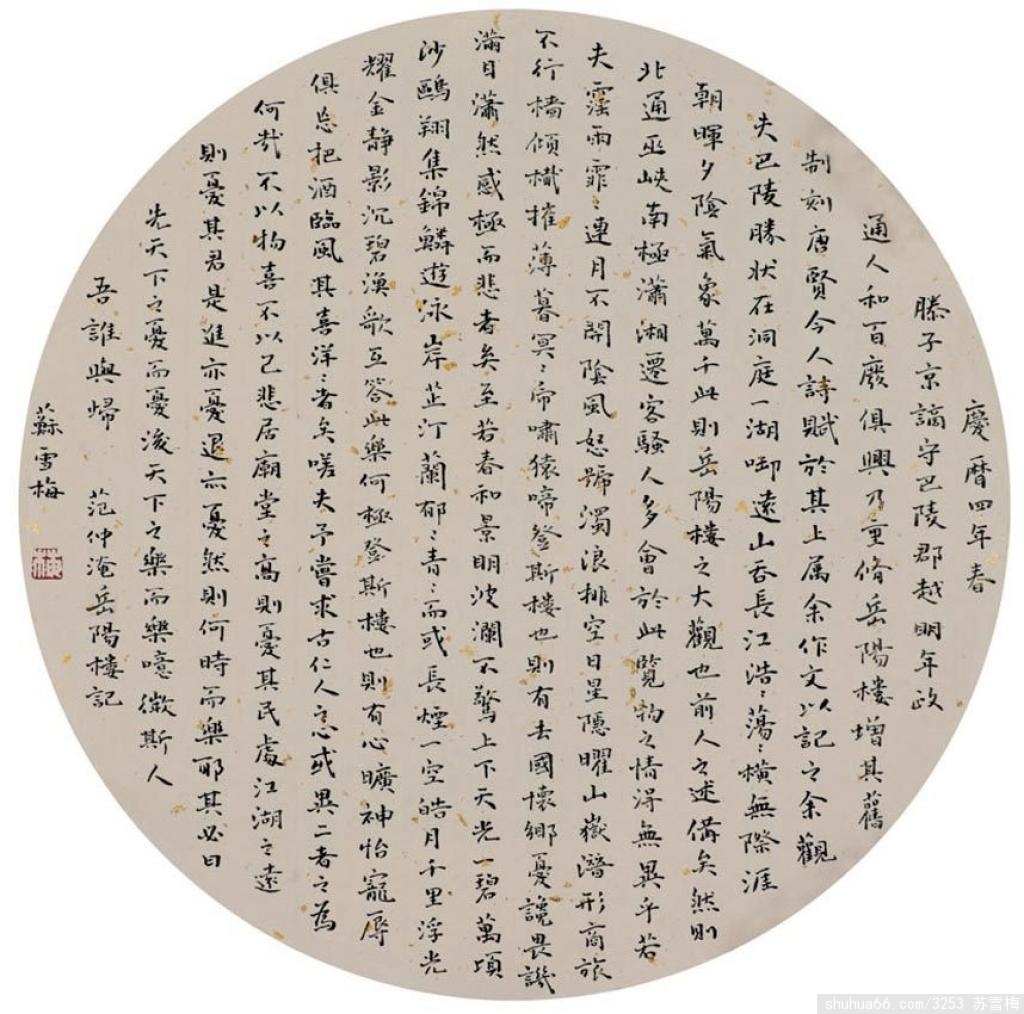 慶曆四年春
滕子京謫守巴陵郡越明年政
通人和百廢俱興乃重脩岳陽樓增其舊
制刻唐賢今人詩賦於其上属余作文以記之余觀
夫巴陵勝狀在洞庭一湖啣遠山吞長江浩〻蕩〻橫無際涯
朝暉夕陰氣象萬千此則岳陽樓之大觀也前人之述備矣然則
北通巫峽南極瀟湘遷客騷人多會於此覽物之情得無異乎若
夫霪雨霏〻連月不開陰風怒號濁浪排空日星隱曜山嶽潛形商旅
不行檣傾檝摧薄暮冥〻帍嘯猿啼登斯樓也則有去國懷鄉憂讒畏譏
滿目瀟然感極而悲者矣至若春和景明波瀾不驚上下天光一碧萬頃
沙鷗翔集錦鱗遊泳岸芷汀蘭郁〻青〻而或長煙一空皓月千里浮光
耀金靜影沉碧漁歌互答此樂何極登斯樓也則有心曠神怡寵辱
俱忘把酒臨風其喜洋〻者矣嗟夫予嘗求古仁人之心或異二者之為
何哉不以物喜不以己悲居廟堂之高則憂其民處江湖之遠
則憂其君是進亦憂退亦憂然則何時而樂耶其必曰
先天下之憂而憂後天下之樂而樂噫微斯人
吾誰與歸 范仲淹岳陽樓記
蘇雪梅
shuhua66.com/3253 苏雪梅